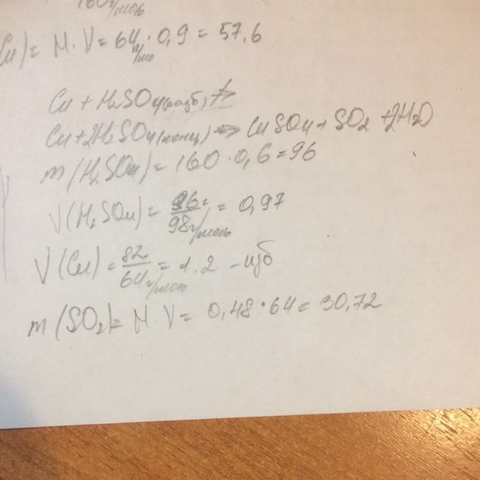 160г/моль
Cu) = M · V = 64г/моль · 0,9 = 57,6
Cu + H2SO4(разб) ≠>
Cu + 2H2SO4(конц) => CuSO4 + SO2 + 2H2O
m(H2SO4) = 160 · 0,6 = 96
V(H2SO4) = 96г / 98г/моль = 0,97
V(Cu) = 82 / 64г/моль = 1.2 - изб
m(SO2) = M · V = 0,48 · 64 = 30,72